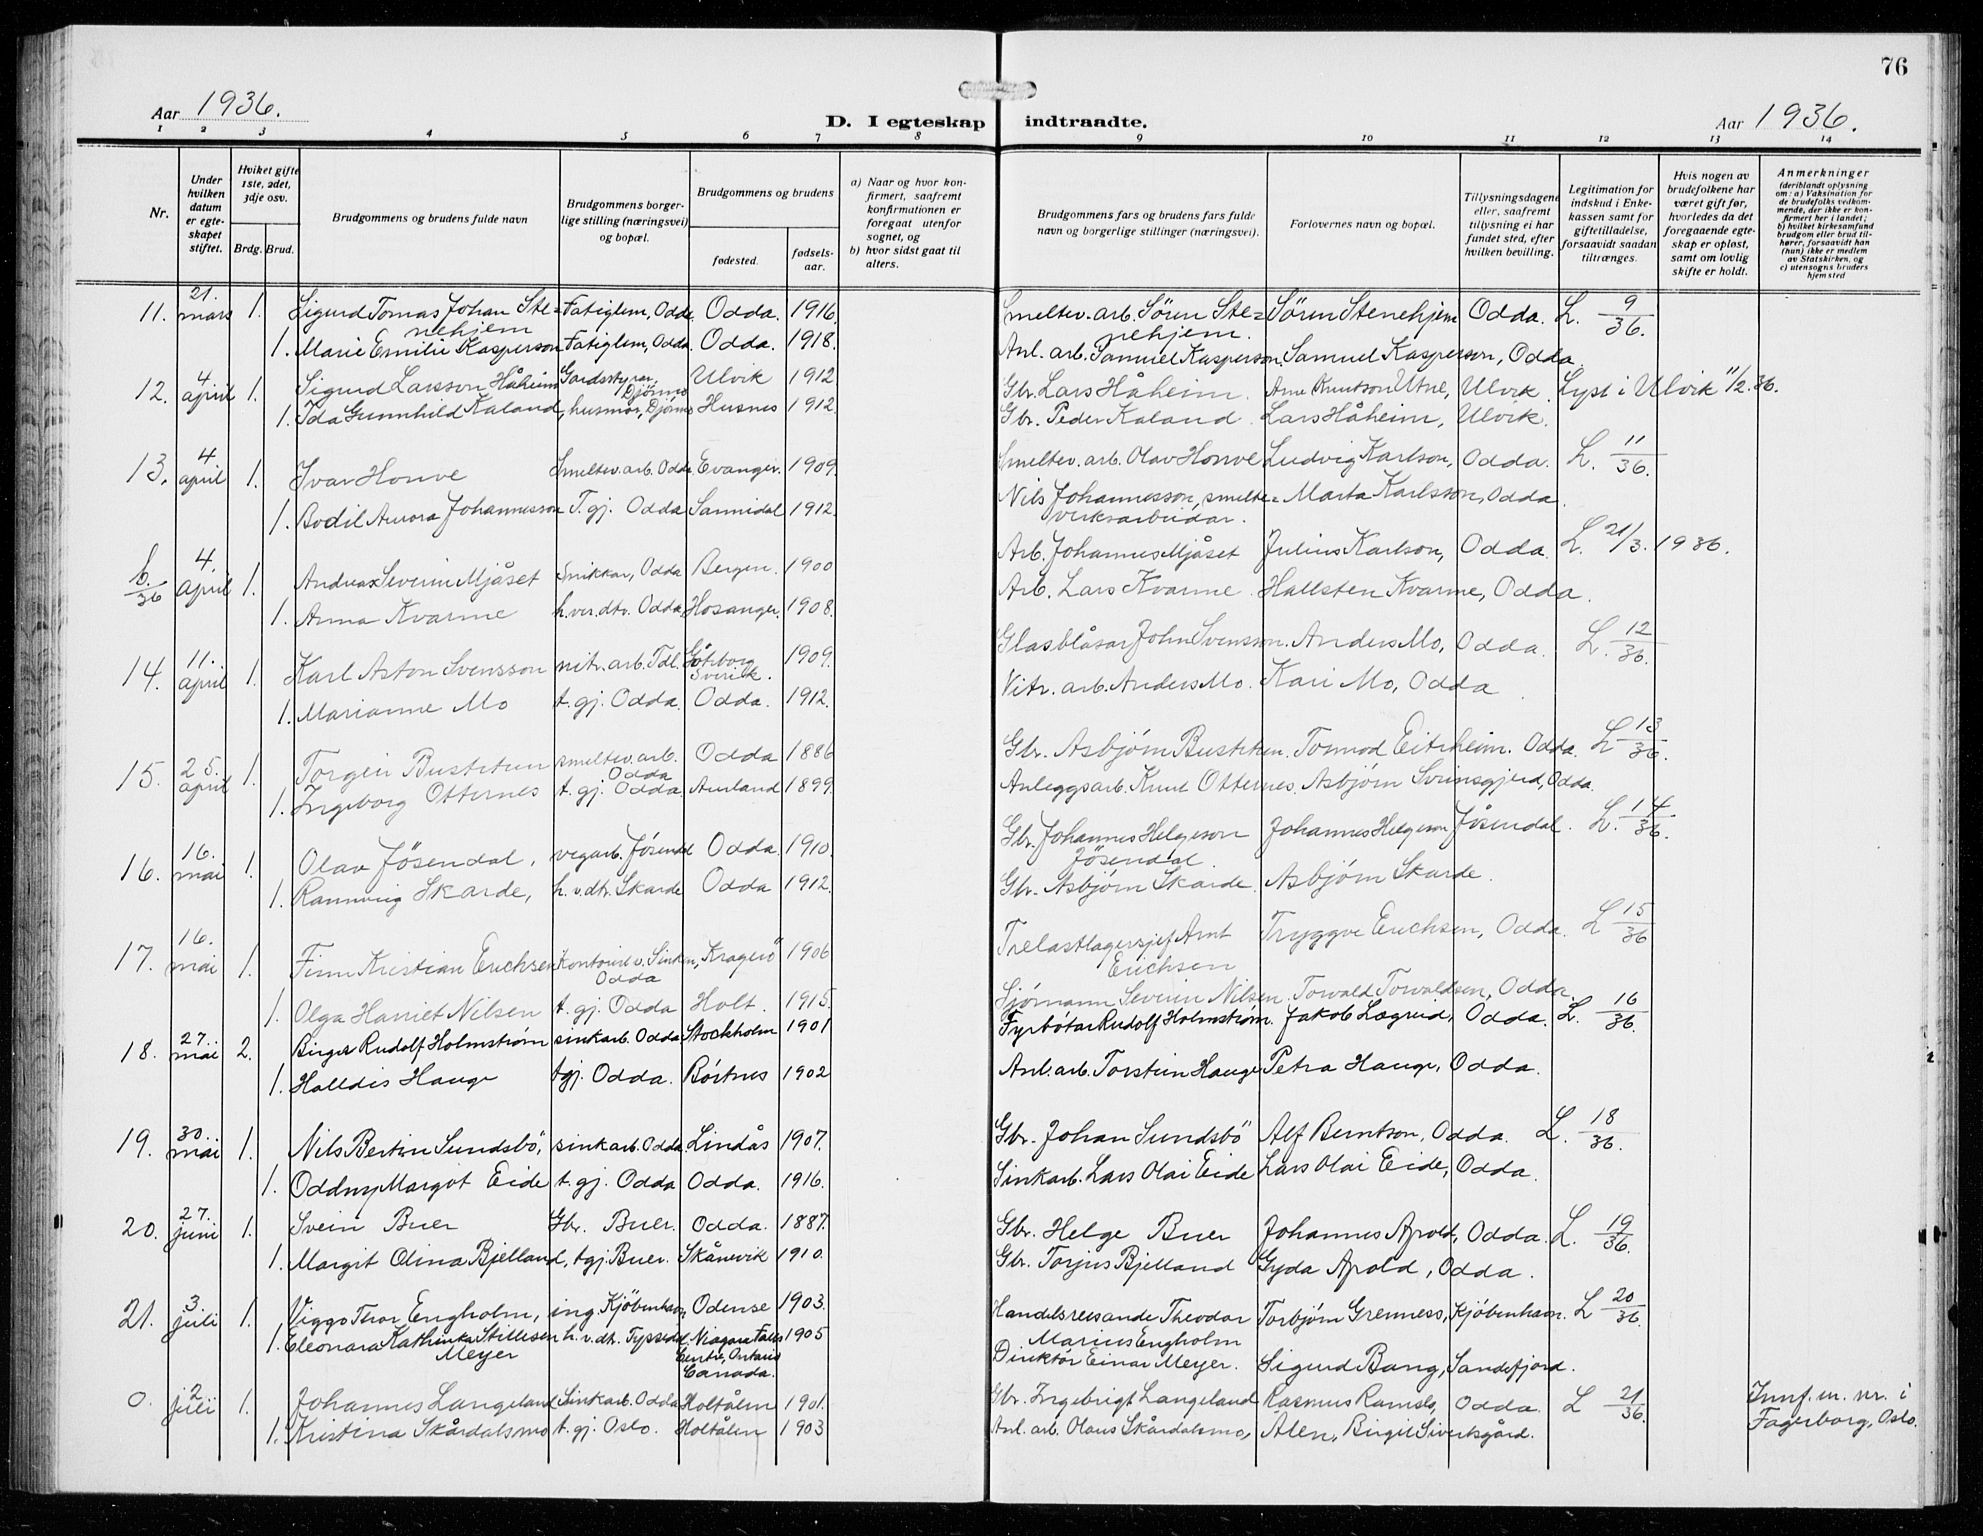 76
Aar 1936.
D. I egteskap indtraadte.
Aar 1936.
1 2 3 4 5 6 7 8 9 10 11 12 13 14
Nr.
Under hvilken datum er egteskapet stiftet.
Hviket gifte 1ste, 2det, 3dje osv.
Brdg. Brud.
Brudgommens og brudens fulde navn
Brudgommens borgerlige stilling (næringsvei) og bopæl.
Brudgommens og brudens
fødested.
fødselsaar.
a) Naar og hvor konfirmert, saafremt konfirmationen er foregaat utenfor sognet, og
b) hvor sidst gaat til alters.
Brudgommens fars og brudens fars fulde navn og borgerlige stillinger (næringsvei).
Forlovernes navn og bopæl.
Tillysningsdagene eller, saafremt tillysning ei har fundet sted, efter hvilken bevilling.
Legitimation for indskud i Enkekassen samt for giftetilladelse, forsaavidt saadan tiltrænges.
Hvis nogen av brudefolkene har været gift før, hvorledes da det foregaaende egteskap er opløst, samt om lovlig skifte er holdt.
Anmerkninger
(deriblandt oplysning om: a) Vaksination for de brudefolks vedkommende, der ikke er konfirmert her i landet; b) hvilket kirkesamfund brudgom eller brud tilhører, forsaavidt han (hun) ikke er medlem av Statskirken, og c) utensogns bruders hjemsted
11. 21. mars 1. Sigurd Tomas Johan Stenehjem Fatiglem, Odda Odda. 1916. Smeltev. arb. Sören Stenehjem. Sören Stenehjem Odda. L. 9/36.
1. Marie Emilie Kasperson Fatiglem, Odda. Odda. 1918. Anl. arb. Samuel Kasperson. Samuel Kasperson, Odda
12. 4 april 1. Sigurd Larsson Håheim Gardsstyrar, Djönno Ulvik 1912 Gbr. Lars Håheim. Arne Knutson Utne, Ulvik. Lyst i Ulvik 11/2.36.
1. Ida Gunnhild Kaland, husmor, Djönno Husnes 1912. Gbr. Peder Kaland. Lars Håheim, Ulvik.
13. 4 april 1. Ivar Honve Smeltev. arb. Odda Evanger. 1909. Smeltev. arb. Olav Honve Ludvig Karlson, Odda. L. 11/36.
1. Bodil Aurora Johannesson T. gj. Odda Sannidal 1912. Nils Johannesson, smelteverksarbeidar. Marta Karlsson, Odda.
b./36 4. april 1. Andreas Severin Mjåset Snikkar, Odda Bergen. 1900 Arb. Johannes Mjåset Julius Karlson, Odda. L. 21/3. 1936.
1. Anna Kvarme h. ver. dtr. Odda Hosanger. 1908. Arb. Lars Kvarme Hallsten Kvarme, Odda.
14. 11. april 1. Karl Aston Svensson nitr. arb. Tdl. Göteborg Sverik. 1909. Glasblåsar John Svensson. Anders Mo, Odda. L. 12/36.
1. Marianne Mo t. gj. Odda. Odda. 1912. Nitr. arb. Anders Mo. Kari Mo, Odda.
15. 25. april 1. Torgeir Busteten smeltev. arb. Odda Odda 1886 Gbr. Asbjörn Busteten. Tormod Eitrheim. Odda. L 13/36.
1. Ingeborg Otternes t. gj. Odda. Aurland 1899. Anleggsarb. Knut Otternes. Asbjörn Svensgjerd, Odda.
16. 16. mai 1. Olav Jösendal, vegarb. Jösendal Odda. 1910. Gbr. Johannes Helgeson Jösendal. Johannes Helgeson Jösendal. L. 14/36.
1. Rannveig Skarde, h. v. dtr. Skarde Odda 1912. Gbr. Asbjörn Skarde. Asbjörn Skarde.
17. 16. mai 1. Finn Kristian Erichsen Kontorist v. Sinken, Odda Kragerö 1906 Trelastlagersjef Arnt Erichsen Tryggve Erichsen, Odda. L 15/36
1. Olga Harriet Nilsen t. gj. Odda Holt. 1915. Sjömann Severin Nilsen. Torvald Torvaldsen, Odda.
18. 27. mai 2. Birger Rudolf Holmström sinkarb. Odda Stockholm 1901 Fyrbötar Rudolf Holmström. Jakob Lægreid, Odda. L. 16/36.
1. Halldis Hauge tgj. Odda. Börtnes 1902 Anl. arb. Torstein Hauge Petra Hauge, Odda.
19. 30. mai 1. Nils Bertin Sundsbö, sinkarb. Odda. Lindås 1907. Gbr. Johan Sundsbö Alf Berntson, Odda. L. 18/36.
1. Oddny Margot Eide t. gj. Odda Odda. 1916. Sinkarb. Lars Olai Eide Lars Olai Eide, Odda.
20. 27. juni 1. Svein Buer Gbr. Buer. Odda. 1887. Gbr. Helge Buer Johannes Apold, Odda. L. 19/36.
1. Margit Olina Bjelland, tgj. Buer. Skånevik 1910. Gbr. Torjus Bjelland Gyda Apold, Odda.
21. 3 juli 1. Viggo Thor Engholm, ing. Kjöbenhavn, Odense 1903. Handelsreisande Theodor Marius Engholm Torbjörn Grenness, Kjöbenhavn. L 20/36.
1. Eleonara Kathinka Stillesen Meyer h. v. dt. Tyssedal, Niagara Falls Centre, Ontario Canada. 1905 Direktör Einar Meyer. Sigurd Bang, Sandefjord.
0. 2 juli 1. Johannes Langeland Sinkarb. Odda Holtålen 1901. Gbr. Ingebrigt Langeland Rasmus Ramslo, Odda. L 21/36. Innf. m. nr. i Fagerborg, Oslo.
1. Kristina Skårdalsmo t. gj. Oslo. Holtålen 1903 Anl. arb. Olaus Skårdalsmo, Ålen, Birgit Sivertsgård.